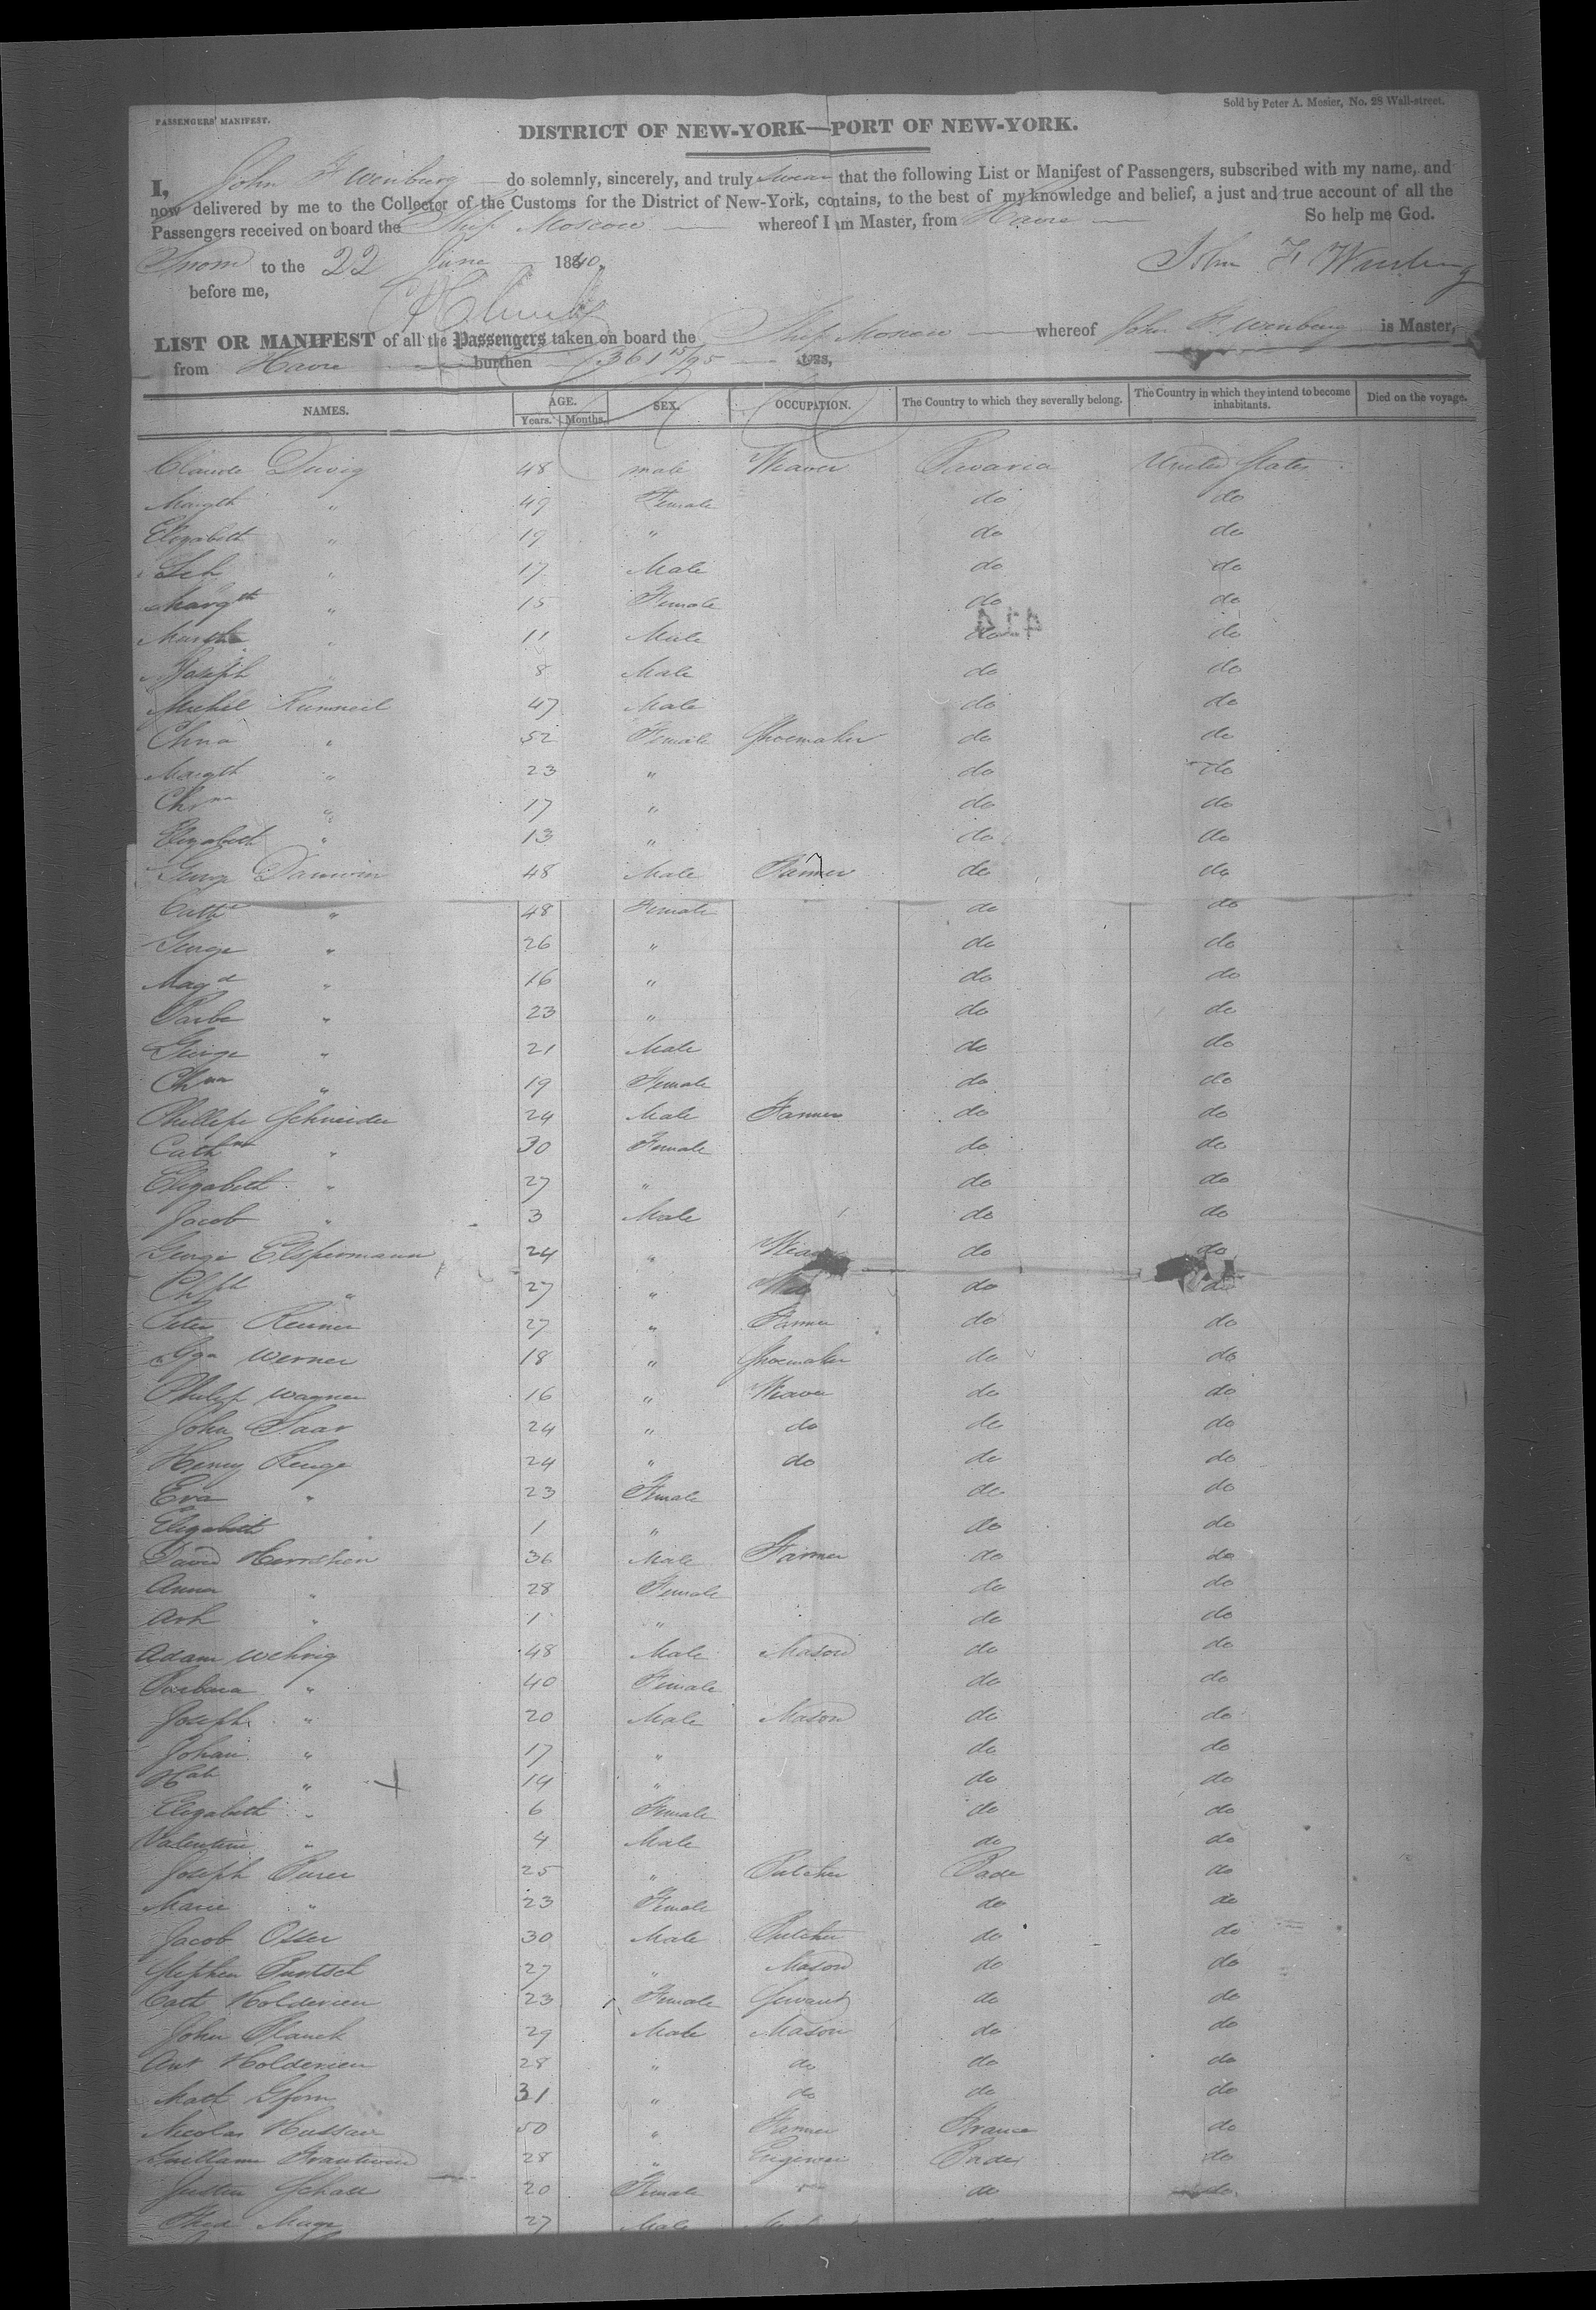 PASSENGERS' MANIFEST.
Sold by Peter A. Mesier, No. 28 Wall-street.
DISTRICT OF NEW-YORK—PORT OF NEW-YORK.
I, John F Wenburg do solemnly, sincerely, and truly swear that the following List or Manifest of Passengers, subscribed with my name, and
now delivered by me to the Collector of the Customs for the District of New-York, contains, to the best of my knowledge and belief, a just and true account of all the
Passengers received on board the Ship Moscow whereof I am Master, from Havre So help me God.
Sworn to the 22 June 1840.
John F. Wenburg
before me,
LIST OR MANIFEST of all the Passengers taken on board the Ship Moscow whereof John F. Wenburg is Master,
from Havre burthen 361 15/95 tons,
NAMES. AGE. SEX. OCCUPATION. The Country to which they severally belong. The Country in which they intend to become inhabitants. Died on the voyage.
Years. Months.
Claude Duvig 48 male Weaver Bavaria United States
Margth " 49 Female do do
Elizabeth " 19 " do do
17 Male do do
Margth " 15 Female do do
11 Male do do
414
Joseph " 8 Male do do
Michel Rumneil 47 Male do do
Chna " 52 Female Shoemaker do do
Margth " 23 " do do
Chrna " 17 " do do
Elizabeth " 13 " do do
George 48 Male Farmer do do
Cathe " 48 Female do do
George " 26 " do do
Magd " 16 " do do
Barbe " 23 " do do
George " 21 Male do do
Chna " 19 Female do do
Phillipe Schneider 24 Male Farmer do do
Cathna " 30 Female do do
Elizabeth " 27 " do do
Jacob " 3 Male do do
George Elspermann 24 " do do
Chsph " 27 " do do
Peter Reimer 27 " Farmer do do
Werner 18 " Shoemaker do do
Philip Wagner 16 " Weaver do do
John Saar 24 " do do do
Henry Renge 24 " do do do
Eva " 23 Female do do
Elizabeth 1 " do do
David 36 Male Farmer do do
Anna " 28 Female do do
" 1 " do do
Adam Wehrig 48 Male Mason do do
Barbara " 40 Female do do
Joseph " 20 Male Mason do do
Johan " 17 " do do
" 14 " do do
Elizabeth " 6 Female do do
Valentine " 4 Male do do
Joseph 25 " Butcher Bade do
Marie " 23 Female do do
Jacob Osser 30 Male Butcher do do
Stephen 27 " Mason do do
Cath Holderien 23 Female Servant do do
John Blanck 29 Male Mason do do
Ant Holderien 28 " do do do
Matt 31 " do do do
Nicolas Hussau 50 " Farmer France do
Guillame 28 " Baden do
Justin Schall 20 Female do do
27 Male